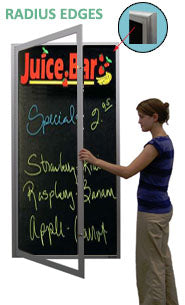 RADIUS EDGES
Juice Bar
Specials 2.95
Strawberry-Kiwi
Raspberry-Banana
Apple-Carrot